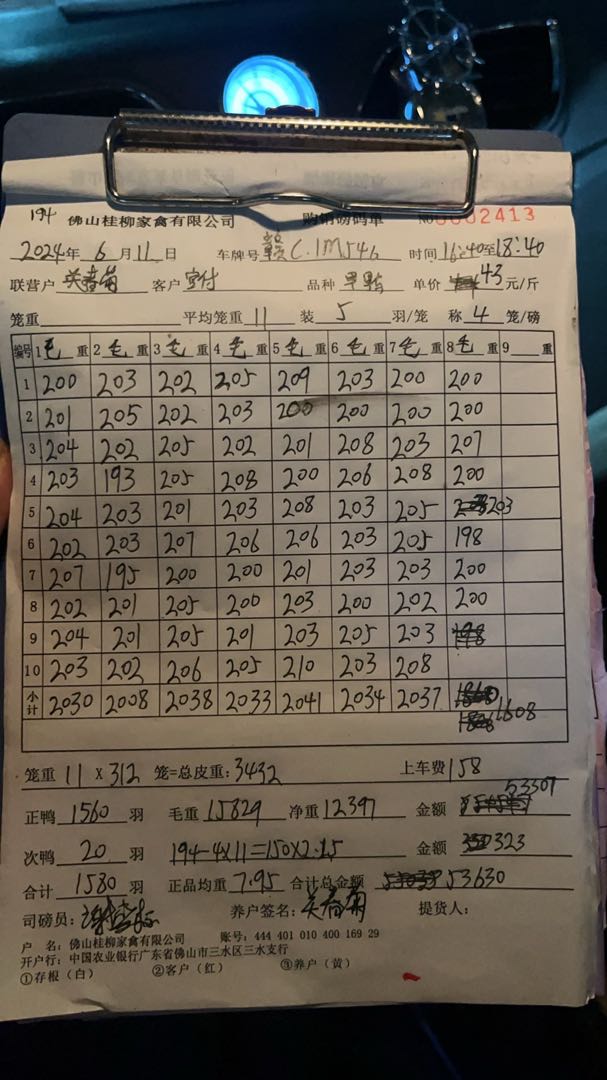 194 佛山桂柳家禽有限公司 购销磅码单 NO 0002413
2024年 6 月 11 日 车牌号 赣C.1M546 时间 16:40至18:40
联营户 关春菊 客户 客户 品种 单价 43 元/斤
笼重 平均笼重 11 装 5 羽/笼 称 4 笼/磅
编号 1 毛 重 2 毛 重 3 毛 重 4 毛 重 5 毛 重 6 毛 重 7 毛 重 8 毛 重 9 重
1 200 203 202 205 209 203 200 200
2 201 205 202 203 200 200 200 200
3 204 202 205 202 201 208 203 207
4 203 193 205 208 200 206 208 200
5 204 203 201 203 208 203 205 203
6 202 203 207 206 206 203 205 198
7 207 195 200 200 201 203 203 200
8 202 201 205 200 203 200 202 200
9 204 201 205 201 203 205 203
10 203 202 206 205 210 203 208
小计 2030 2008 2038 2033 2041 2034 2037 1608
笼重 11 X 312 笼=总皮重: 3432 上车费 158
正鸭 1560 羽 毛重 15829 净重 12397 金额 53307
次鸭 20 羽 194-4X11=150X2.15 金额 323
合计 1580 羽 正品均重 7.95 合计总金额 53630
司磅员: 养户签名: 关春菊 提货人:
户 名: 佛山桂柳家禽有限公司 账号: 444 401 010 400 169 29
开户行: 中国农业银行广东省佛山市三水区三水支行
①存根（白） ②客户（红） ③养户（黄）